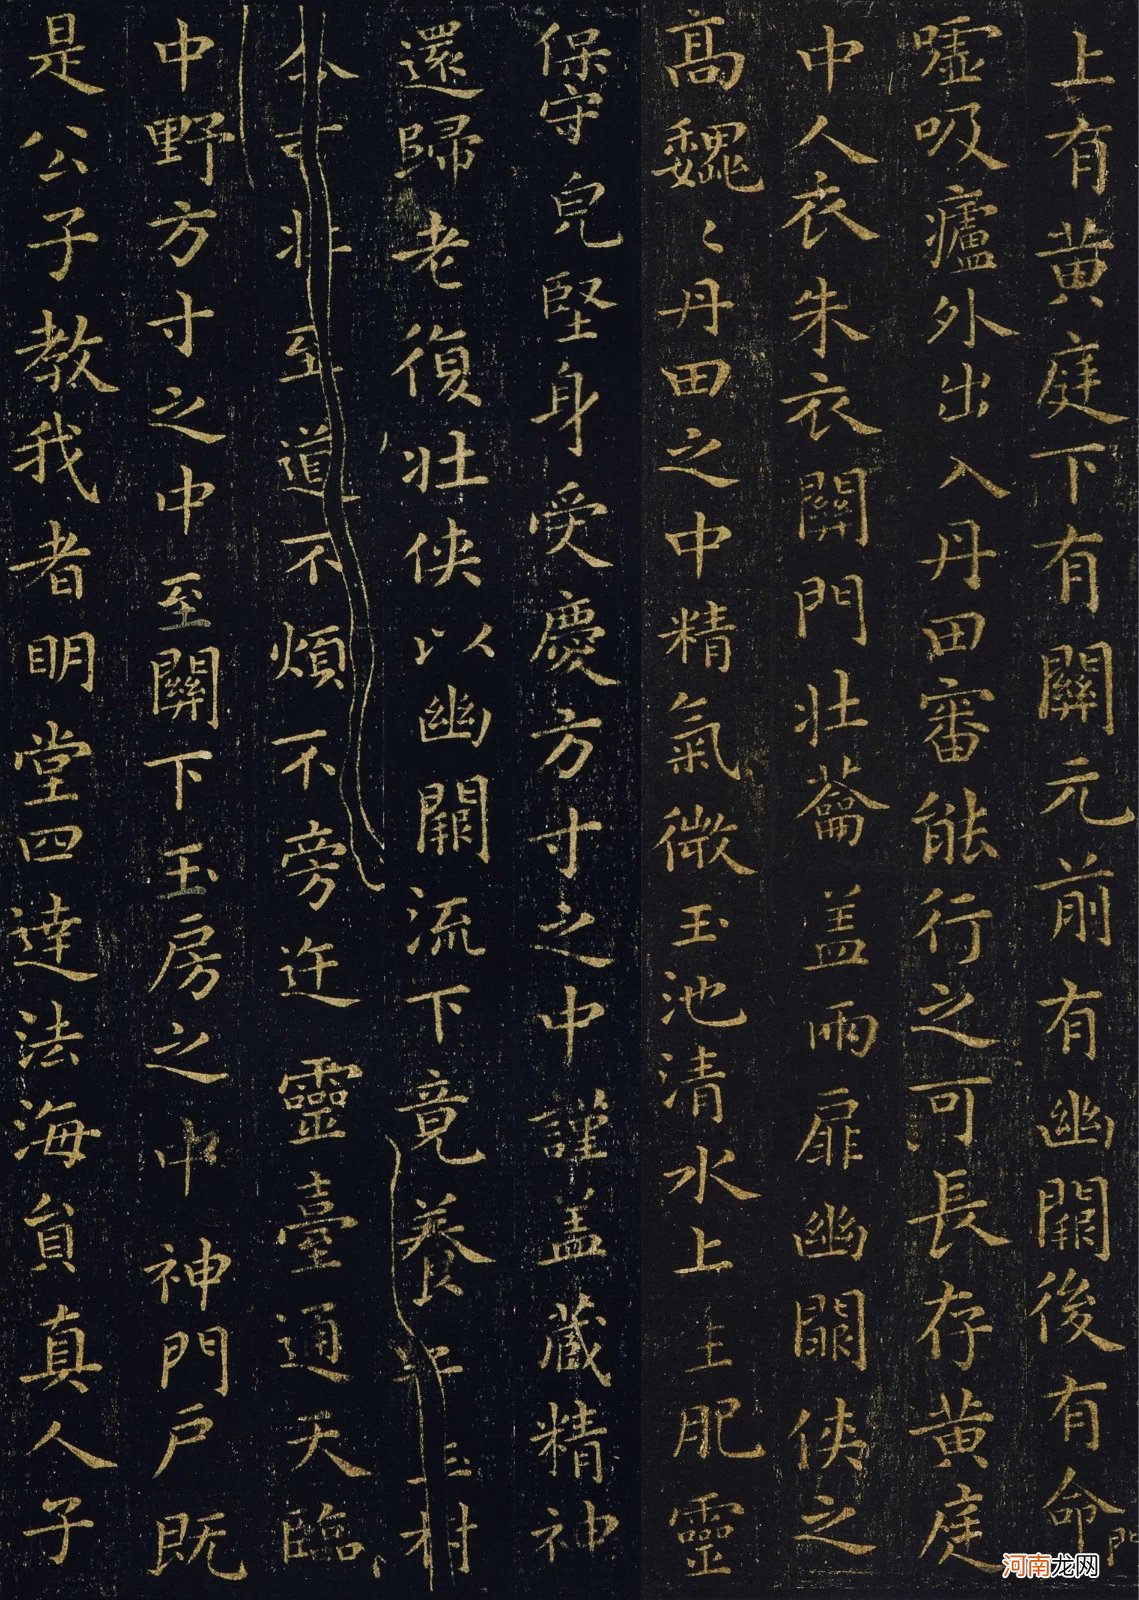 上有黄庭下有關元前有幽闕後有命門
嘘吸廬外出入丹田審能行之可長存黄庭
中人衣朱衣關門壯蘥盖兩扉幽闕俠之
髙巍〻丹田之中精氣微玉池清水上生肥靈
保守皃堅身受慶方寸之中謹盖藏精神
還歸老復壯俠以幽闕流下竟養子玉樹
不可杖至道不煩不旁迕靈臺通天臨
中野方寸之中至關下玉房之中神門户既
是公子教我者明堂四達法海員真人子
河南龙网